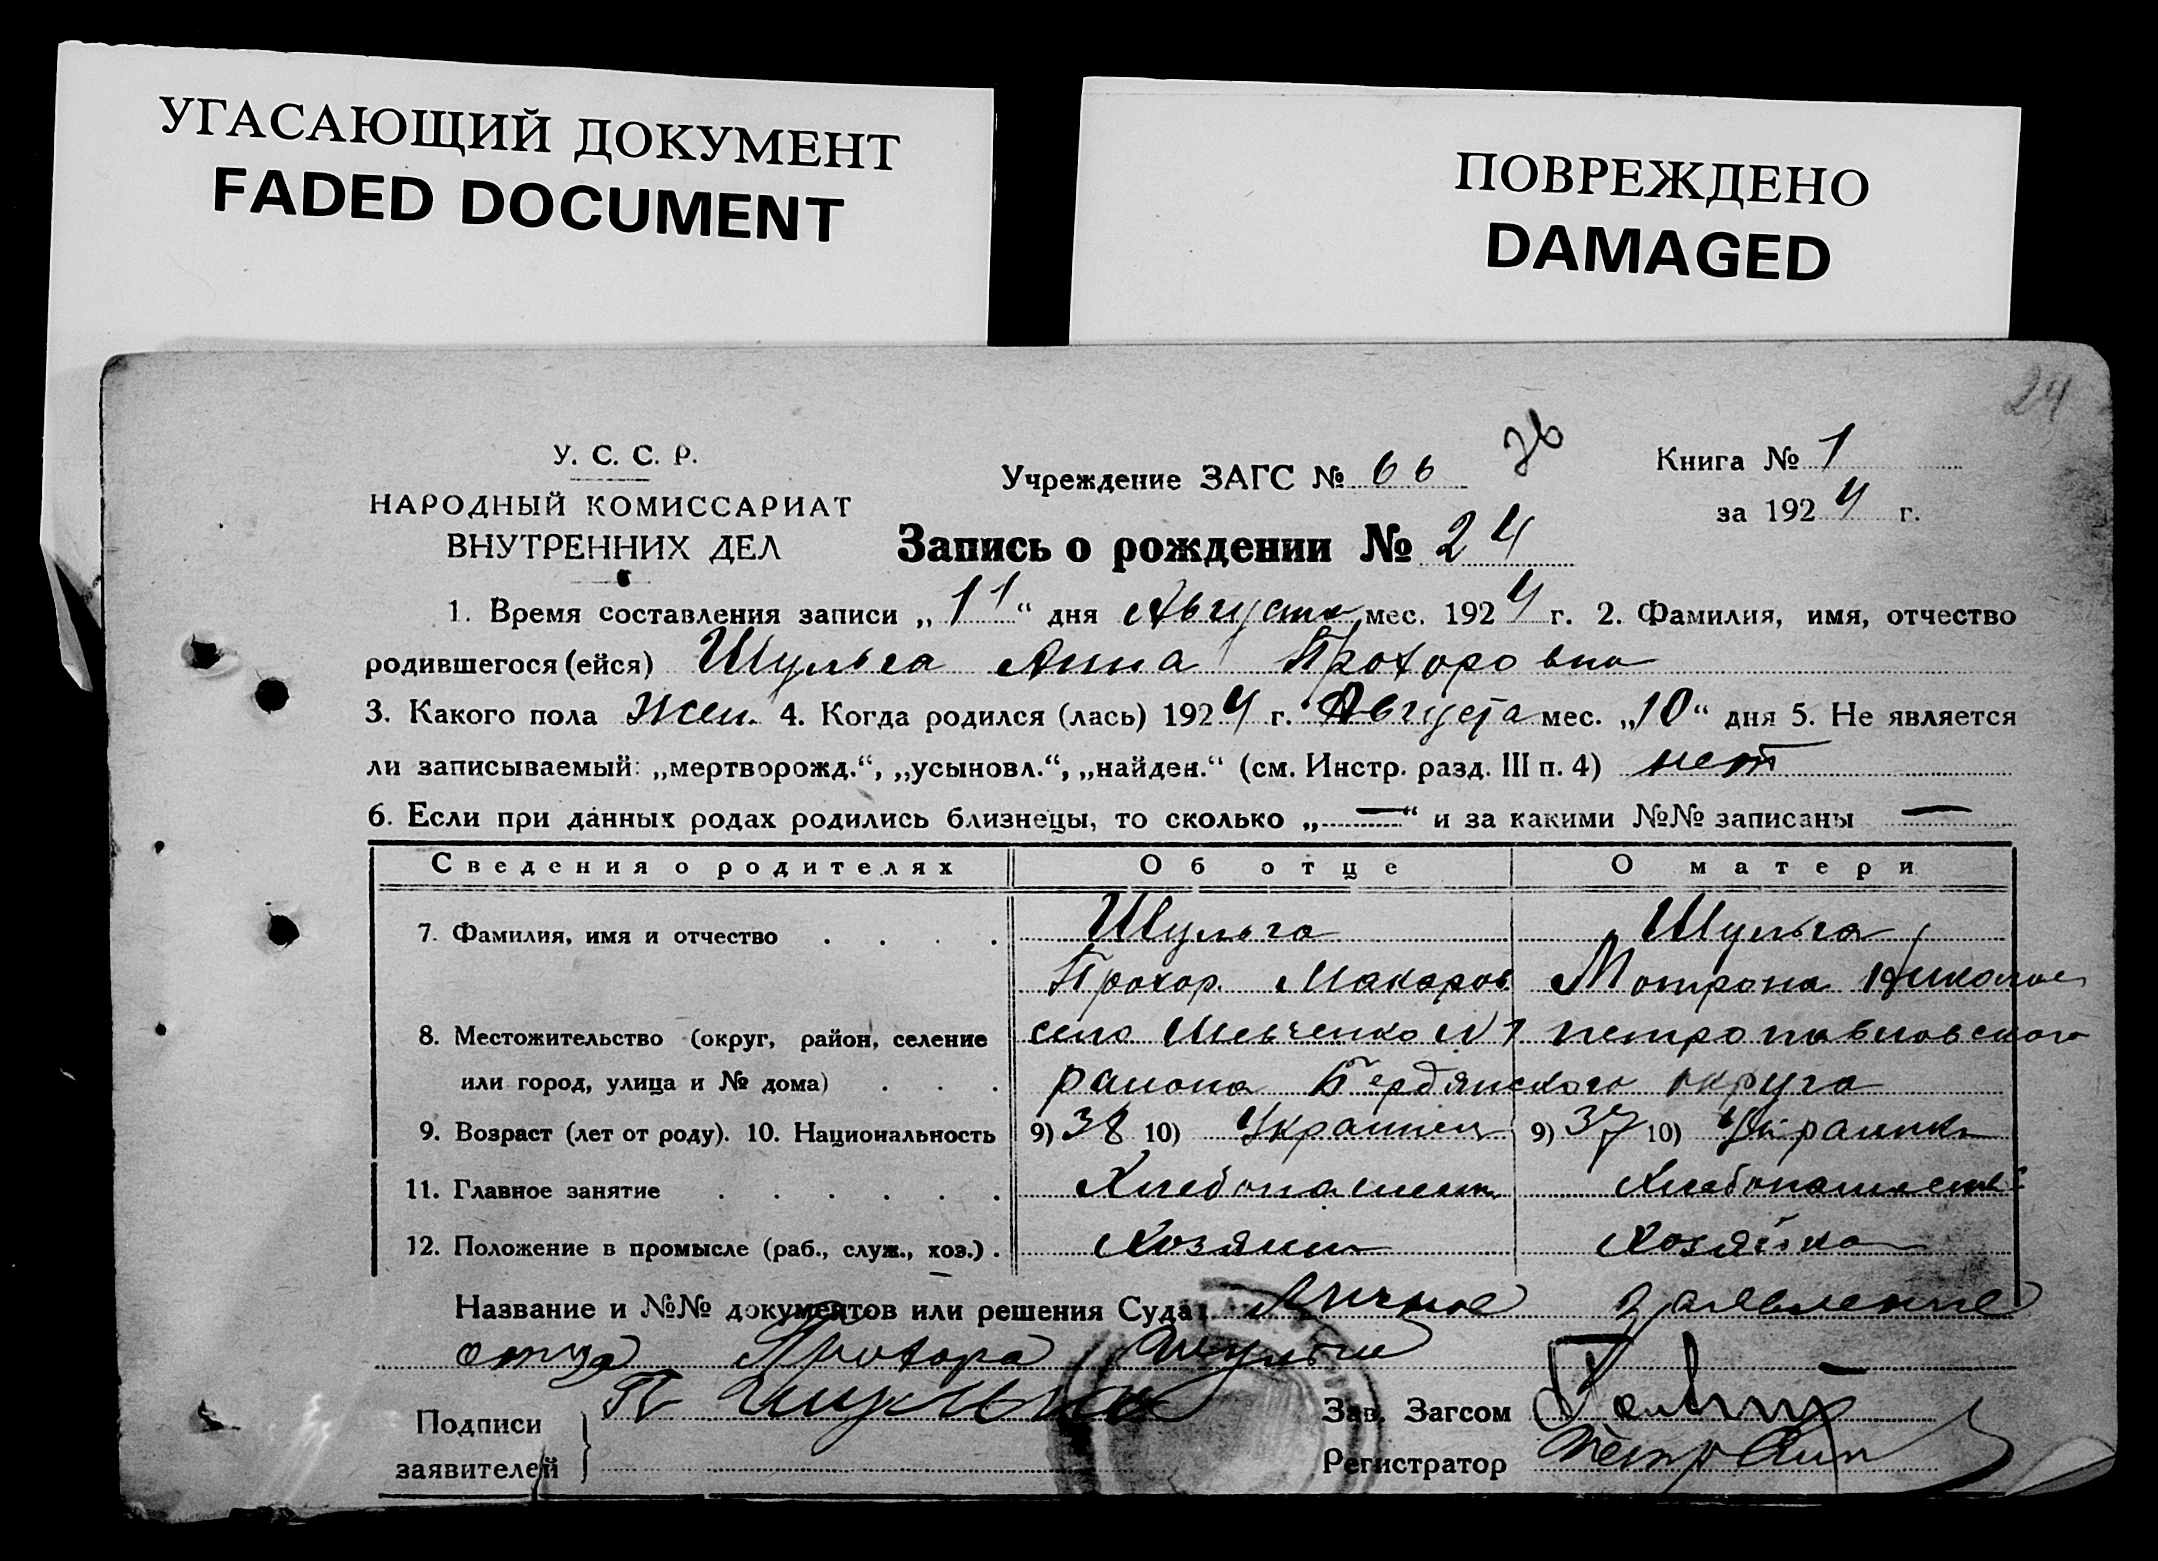 УГАСАЮЩИЙ ДОКУМЕНТ
FADED DOCUMENT
ПОВРЕЖДЕНО
DAMAGED
24
У. С. С. Р.
НАРОДНЫЙ КОМИССАРИАТ
ВНУТРЕННИХ ДЕЛ
Учреждение ЗАГС № 66
Книга № 1
за 1924 г.
Запись о рождении № 24
1. Время составления записи „11“ дня Августа мес. 1924 г. 2. Фамилия, имя, отчество
родившегося (ейся) Шульга Анна Прохоровна
3. Какого пола жен. 4. Когда родился (лась) 1924 г. Августа мес. „10“ дня 5. Не является
ли записываемый: „мертворожд.“, „усыновл.“, „найден.“ (см. Инстр. разд. III п. 4) нет
6. Если при данных родах родились близнецы, то сколько „—“ и за какими №№ записаны —
Сведения о родителях Об отце О матери
7. Фамилия, имя и отчество . . . . Шульга Шульга
Прохор Макаров Мотрона Николаев
8. Местожительство (округ, район, селение село Шевченко №1 петропавловского
или город, улица и № дома) . . . района Бердянского округа
9. Возраст (лет от роду). 10. Национальность 9) 38 10) Украинец 9) 37 10) Украинка
11. Главное занятие . . . . . . Хлебопашест Хлебопашеств
12. Положение в промысле (раб., служ., хоз.) . Хозяин Хозяйка
Название и №№ документов или решения Суда: Личное заявление
отца Прохора Шульги
Подписи
заявителей
П Шульга
Зав. Загсом
Регистратор